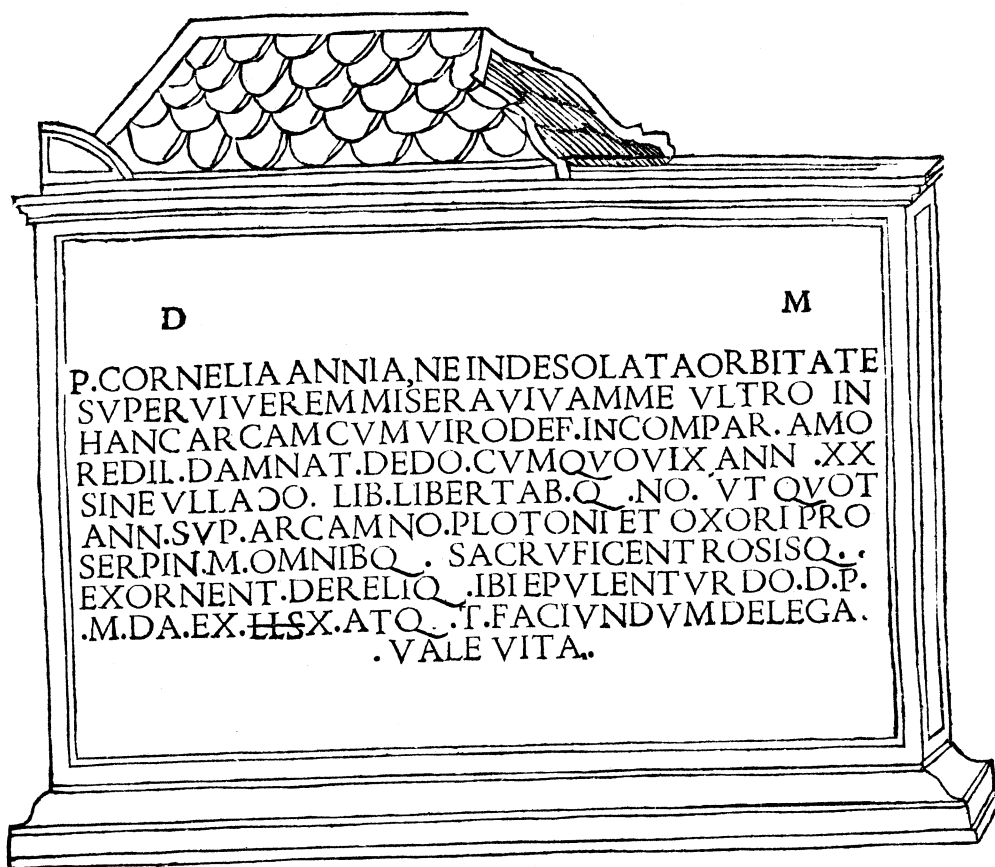 D M
P.CORNELIA ANNIA,NE IN DESOLATA ORBITATE
SVPERVIVEREM MISERA VIVAM ME VLTRO IN
HANC ARCAM CVM VIRO DEF.INCOMPAR. AMO
REDIL.DAMNAT.DEDO.CVM QVO VIX ANN .XX
SINE VLLA ƆO. LIB.LIBERTAB.Q .NO. VT QVOT
ANN.SVP.ARCAM NO.PLOTONI ET OXORI PRO
SERPIN.M.OMNIBQ . SACRVFICENT ROSISQ..
EXORNENT.DERELIQ .IBI EPVLENTVR DO.D.P.
.M.DA.EX.LLSX.ATQ .T.FACIVNDVM DELEGA.
.VALE VITA..